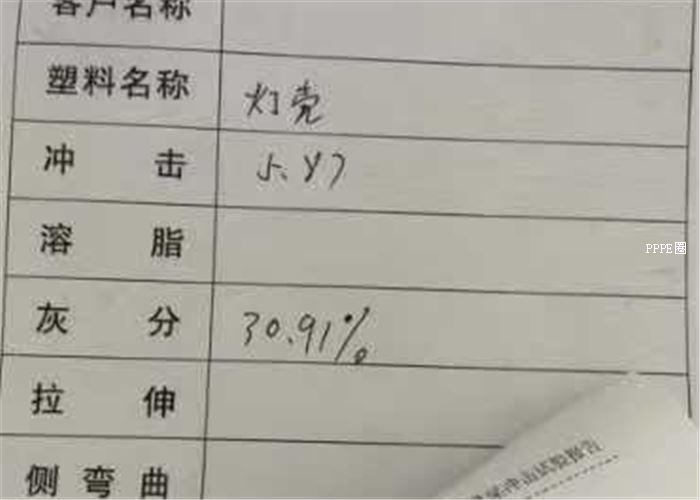 客户名称
塑料名称 灯壳
冲击 5.87
溶脂
PPPE圈
灰分 30.91%
拉伸
侧弯曲
冲击试验报告